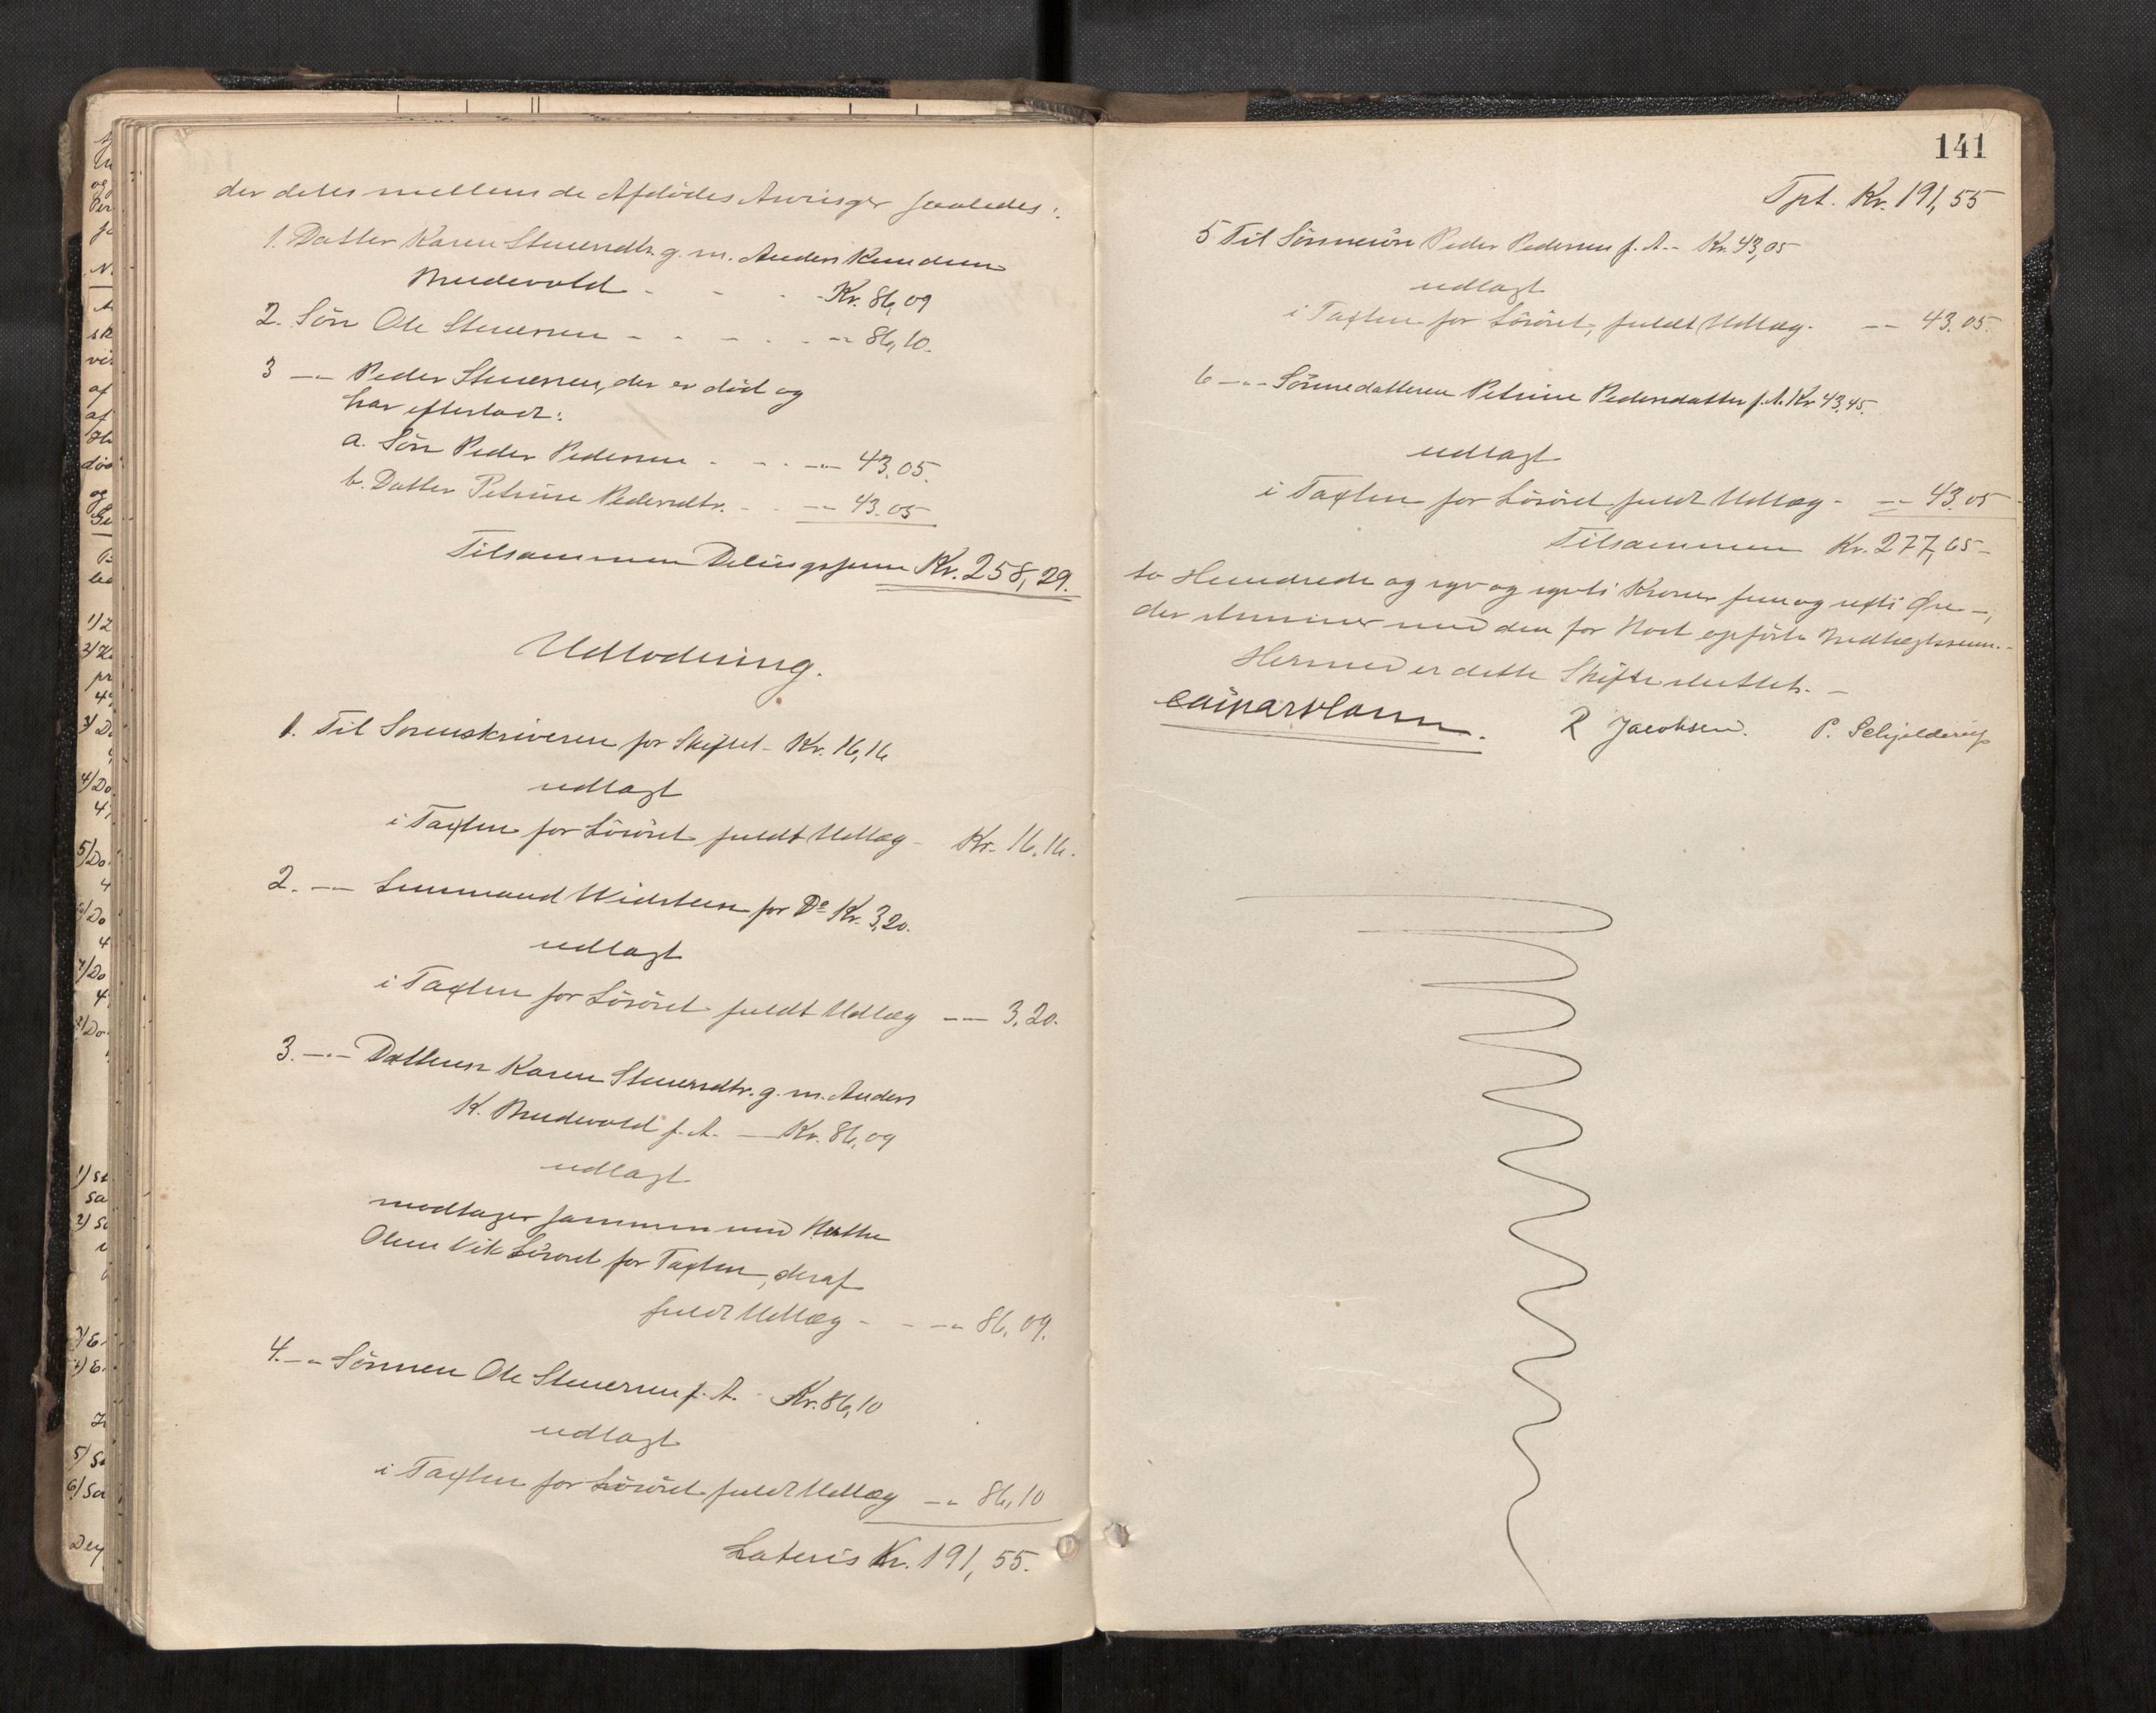 der deles mellem de Afdødes Arvinger saaledes:
1. Datter Karen Steuersdtr. g. m. Anders Knudsen
Brudevold - - - Kr. 86,09
2. Sön Ole Steuersen - - - - - „ 86,10.
3 -„- Peder Steuersen, der er död og
har efterladt:
a. Sön Peder Pedersen - - - „ 43,05.
b. Datter Petrine Pedersdtr. - - „ 43.05
Tilsammen Delingssum Kr. 258,29.
Udlodning.
1. Til Sorenskriveren for Skiftet - Kr. 16,16
udlagt
i Taxten for Lösöret fuldt Udlæg - Kr. 16,16.
2. -„- Lensmand Widsteen for Do Kr. 3,20.
udlagt
i Taxten for Lösöret fuldt Udlæg -„- 3,20.
3. -„- Datteren Karen Steuersdtr. g. m. Anders
K. Brudevold f. A. - Kr. 86,09
udlagt
modtager sammen med
Olsen Vik Lösöret for Taxten, deraf
fuldt Udlæg - - - „ 86,09.
4. -„- Sönnen Ole Steuersen f. A. - Kr. 86,10
udlagt
i Taxten for Lösöret fuldt Udlæg - „ 86,10
Lateris Kr. 191,55.
141
Tpt. Kr. 191,55
5 Til Sönnesön Peder Pedersen f. A. - Kr. 43,05
udlagt
i Taxten for Lösöret, fuldt Udlæg. -„- 43.05.
6 -„- Sönnedatteren Petrine Pedersdatter f. A. Kr 43,45.
udlagt
i Taxten for Lösöret fuldt Udlæg - -„- 43.05
Tilsammen Kr. 277,65 -
to Hundrede og syv og syvti Kroner fem og sexti Øre -,
der stemmer med den for Boet opförte Indtægtssum. -
Hermed er dette Skifte sluttet. -
R Jacobsen. P. Schjelderup